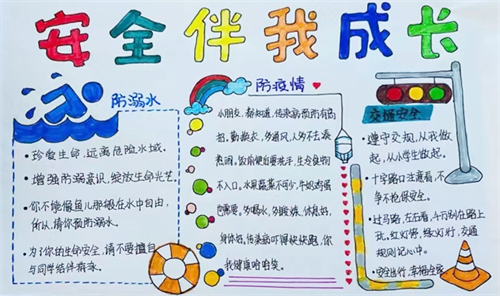 安全伴我成长
防溺水
珍爱生命,远离危险水域。
增强防溺意识,绽放生命光芒。
你不能像鱼儿那样在水中自由,
所以请你预防溺水。
为了你的生命安全,请不要擅自
与同学结伴游泳。
防疫情
小朋友,都知道,传染病预防有高
招。勤换衣,多通风,人多不去凑
热闹。饭前便后要洗手,生冷食物
不入口。水果蔬菜不可少,牛奶鸡蛋
也需要。多喝水,多锻炼,休息好,
身体好,传染病吓得快快跑,你
我健康哈哈笑。
交通安全
遵守交规,从我做
起,从小学生做起。
十字路口注意看,不
争不抢保安全。
过马路,左右看,千万别在路上
玩。红灯停,绿灯行,交通
规则记心中。
安全出行,幸福全家